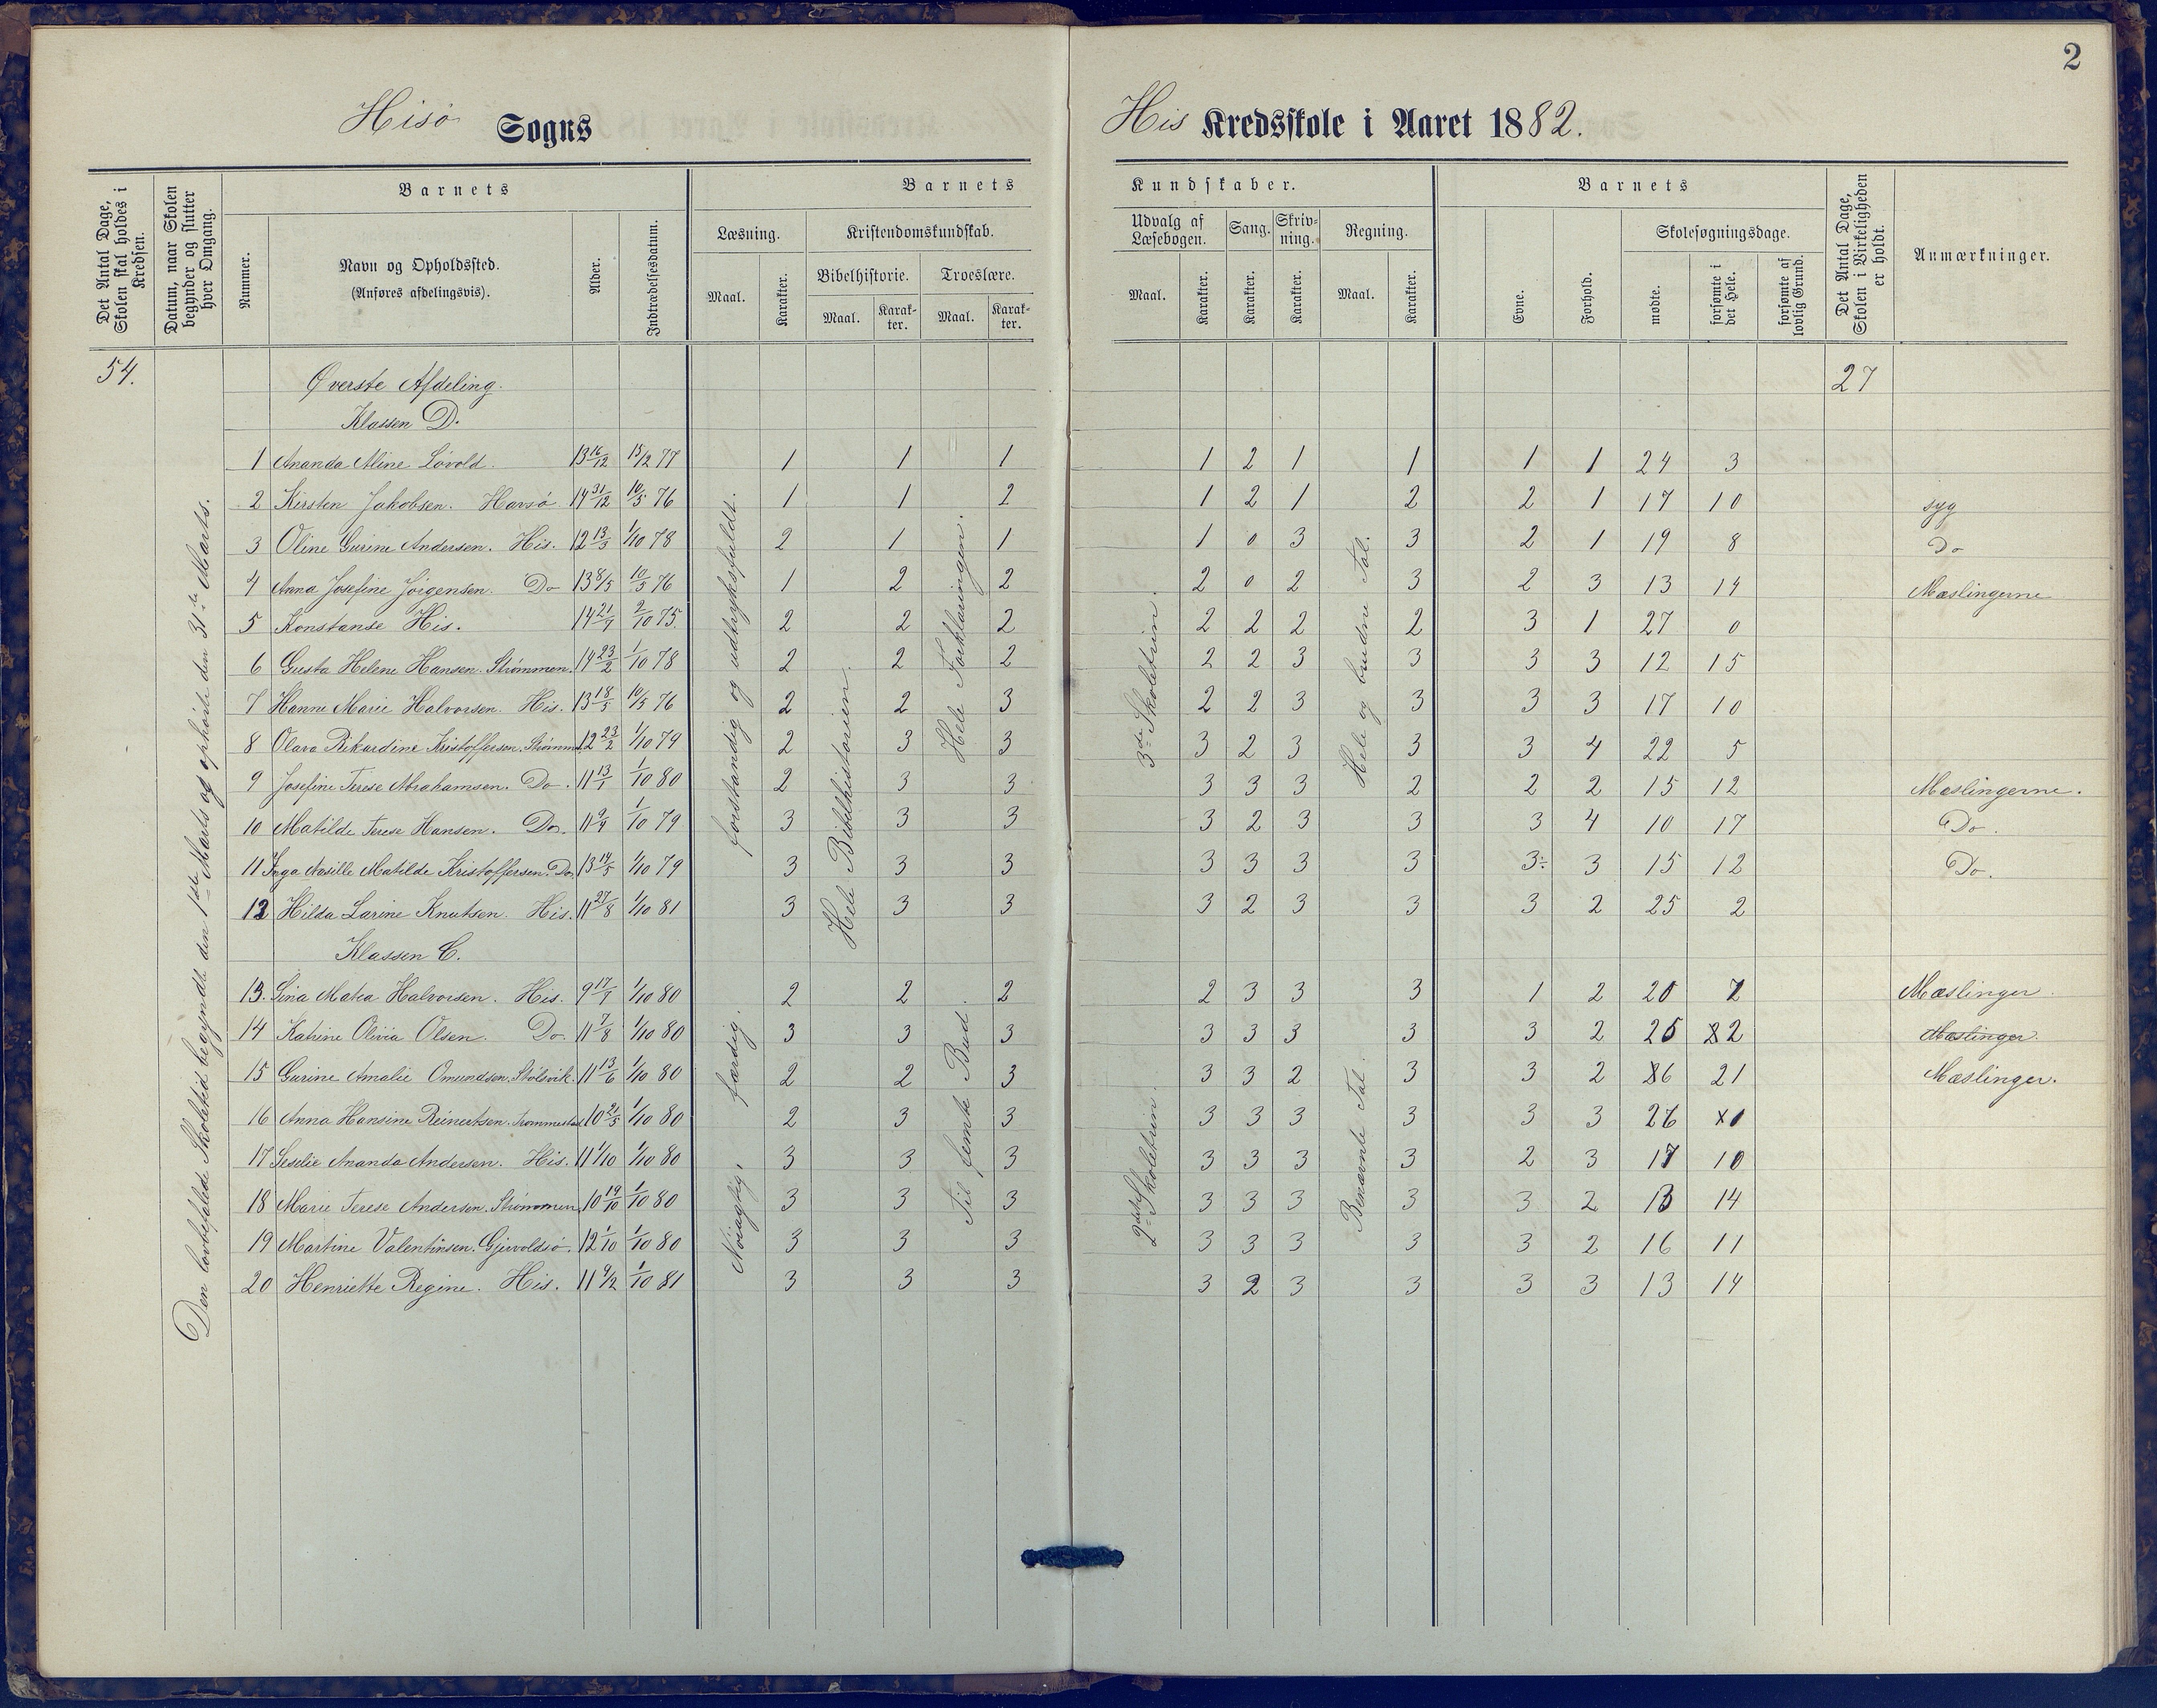 2
Hisö Sogns
His Kredsskole i Aaret 1882.
Det Antal Dage, Skolen skal holdes i Kredsen.
Datum, naar Skolen begynder og slutter hver Omgang.
Barnets
Nummer.
Navn og Opholdssted.
(Anføres afdelingsvis).
Alder.
Indtrædelsesdatum.
Barnets Kundskaber.
Læsning.
Maal.
Karakter.
Kristendomskundskab.
Bibelhistorie.
Maal.
Karakter.
Troeslære.
Maal.
Karakter.
Udvalg af Læsebogen.
Maal.
Karakter.
Sang.
Karakter.
Skrivning.
Karakter.
Regning.
Maal.
Karakter.
Barnets
Evne.
Forhold.
Skolesøgningsdage.
mødte.
forsømte i det Hele.
forsømte af lovlig Grund.
Det Antal Dage, Skolen i Virkeligheden er holdt.
Anmærkninger.
54.
Øverste Afdeling.
27
Klassen D.
Den lovbefalede Skoletid begyndte den 1ste Marts og ophörte den 31te Marts.
forstandig og udtryksfuldt.
Hele Bibelhistorien.
Hele Forklaringen.
3die Skoletrin.
Hele og brudne Tal.
1 Ananda Aline Lövold. 13 16/12 15/2 77 1 1 1 1 2 1 1 1 1 24 3
2 Kirsten Jakobsen. Havsö 14 31/12 10/5 76 1 1 2 1 2 1 2 2 1 17 10 syg
3 Oline Gurine Andersen. His. 12 13/3 1/10 78 2 1 1 1 0 3 3 2 1 19 8 Do
4 Anna Josefine Jörgensen. Do 13 8/5 10/5 76 1 2 2 2 0 2 3 2 3 13 14 Mæslingerne
5 Konstanse His. 14 21/1 2/10 75. 2 2 2 2 2 2 2 3 1 27 0
6 Gusta Helene Hansen. Strömmen. 14 23/2 1/10 78 2 2 2 2 2 3 3 3 3 12 15
7 Hanne Marie Halvorsen. His. 13 18/5 10/5 76 2 2 3 2 2 3 3 3 3 17 10
8 Olava Rikardine Kristoffersen. Strömm. 12 23/2 1/10 79 2 3 3 3 2 3 3 3 4 22 5
9 Josefine Terese Abrahamsen. Do. 11 13/1 1/10 80 2 3 3 3 3 3 2 2 2 15 12 Mæslingerne.
10 Matilde Terese Hansen. Do. 11 9/9 1/10 79 3 3 3 3 2 3 3 3 4 10 17 Do.
11 Inga Matilde Kristoffersen. Do. 13 14/5 1/10 79 3 3 3 3 3 3 3 3÷ 3 15 12 Do.
12 Hilda Larine Knutsen. His. 11 27/8 1/10 81 3 3 3 3 2 3 3 3 2 25 2
Klassen C.
Nöiagtig, færdig.
Til femte Bud.
2det Skoletrin.
Benævnte Tal.
13. Lina Matea Halvorsen. His. 9 17/1 1/10 80 2 2 2 2 3 3 3 1 2 20 7 Mæslinger
14 Katrine Olivia Olsen. Do. 11 7/8 1/10 80 3 3 3 3 3 3 3 3 2 25 2 Mæslinger.
15 Gurine Amalie Omundsen. Stölsvik. 11 13/6 1/10 80 2 2 3 3 3 2 3 3 2 6 21 Mæslinger.
16 Anna Hansine Reinertsen. 10 21/5 1/10 80 2 3 3 3 3 3 3 3 3 26 1
17 Ananda Andersen. His. 11 1/10 1/10 80 3 3 3 3 3 3 3 2 3 17 10
18 Marie Terese Andersen. Strömmen 10 19/10 1/10 80 3 3 3 3 3 3 3 3 2 13 14
19 Martine Valentinsen. Gjervoldsö. 12 1/10 1/10 80 3 3 3 3 3 3 3 3 2 16 11
20 Henriette Regine. His. 11 4/2 1/10 81 3 3 3 3 2 3 3 3 3 13 14